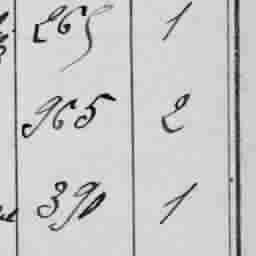 265 1
965 2
390 1